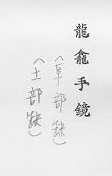 龍龕手鏡
(草部缺)
(土部缺)